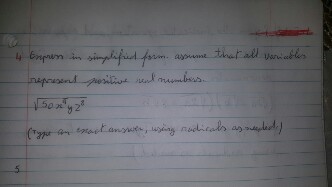 4 Express in simplified form. assume that all variables
represent positive real numbers.
√50x⁴yz⁸
(type an exact answer, using radicals as needed.)
5